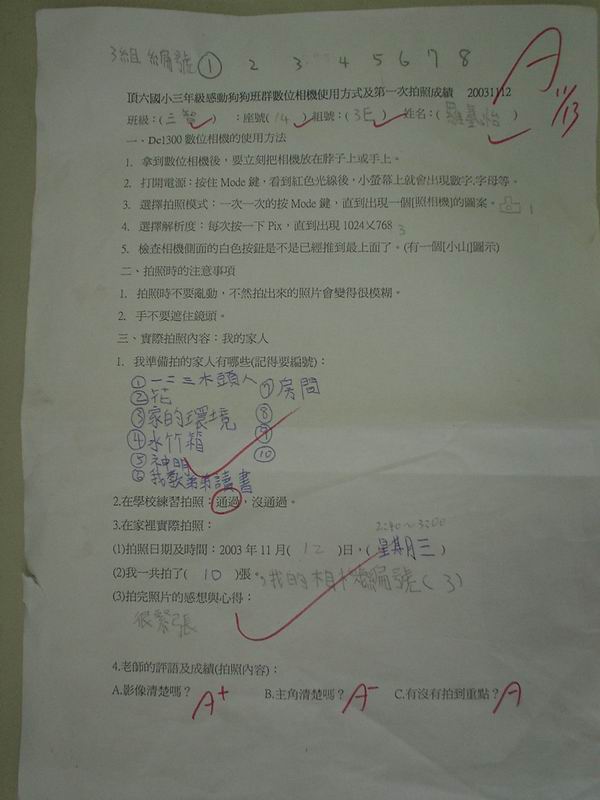 3組 編號 ① 2 3 4 5 6 7 8
A 11/13
頂六國小三年級感動狗狗班群數位相機使用方式及第一次拍照成績 20031112
班級：(三智) ：座號(14) 組號：(3E) 姓名：(羅怡)
一、Dc1300 數位相機的使用方法
1. 拿到數位相機後，要立刻把相機放在脖子上或手上。
2. 打開電源：按住 Mode 鍵，看到紅色光線後，小螢幕上就會出現數字.字母等。
3. 選擇拍照模式：一次一次的按 Mode 鍵，直到出現一個[照相機]的圖案。 1
4. 選擇解析度：每次按一下 Pix，直到出現 1024X768 3
5. 檢查相機側面的白色按鈕是不是已經推到最上面了。(有一個[小山]圖示)
二、拍照時的注意事項
1. 拍照時不要亂動，不然拍出來的照片會變得很模糊。
2. 手不要遮住鏡頭。
三、實際拍照內容：我的家人
1. 我準備拍的家人有哪些(記得要編號)：
①一二三木頭人 ⑦房間
②花
③家的環境 ⑧
④水竹箱 ⑨
⑤神明 ⑩
⑥我教弟弟讀書
2.在學校練習拍照：通過，沒通過。
3.在家裡實際拍照： 2:40~3:00
(1)拍照日期及時間：2003 年 11 月( 12 )日，(星期三)
(2)我一共拍了( 10 )張。我的相機編號(3)
(3)拍完照片的感想與心得：
很緊張
4.老師的評語及成績(拍照內容)：
A.影像清楚嗎？ A+ B.主角清楚嗎？ A- C.有沒有拍到重點？ A